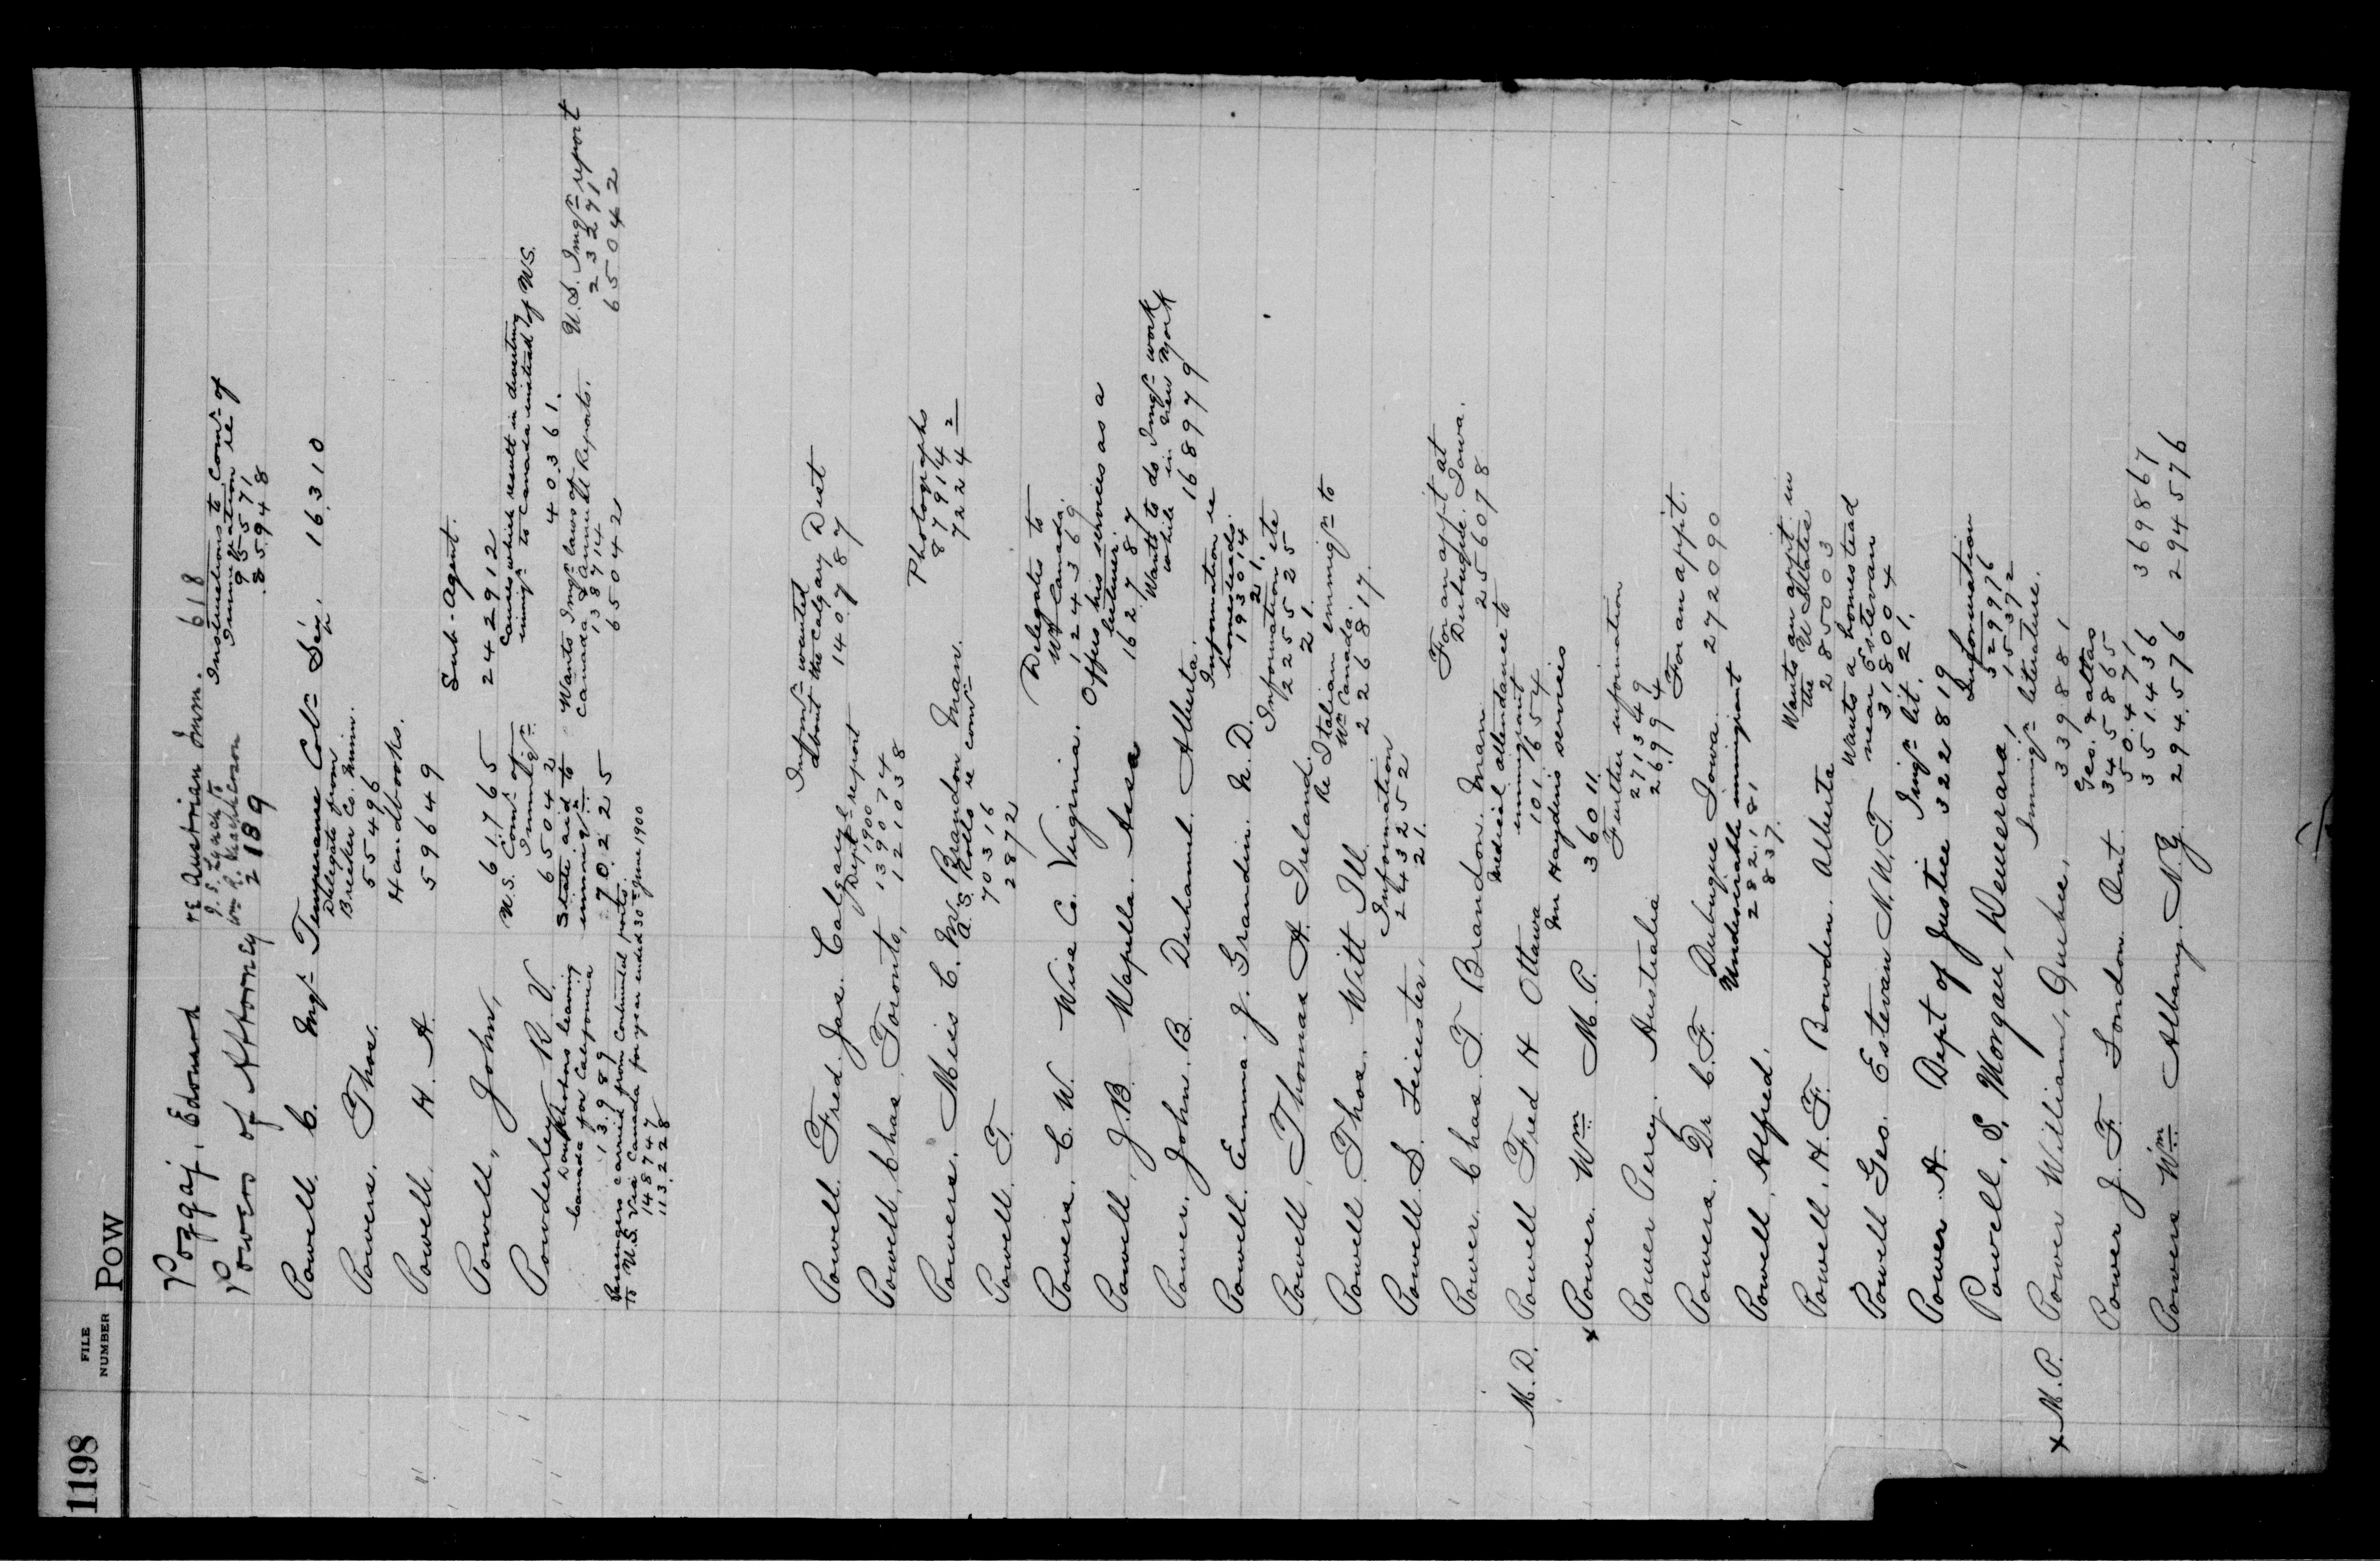 1198
FILE NUMBER
POW
Poggaj, Edward re Austrian Imm. 618
J. S. Lynch
Powers of Attorney 2189
Instructions to Comr. of
Immigration re
95571
85948
Powell C. Mgr Temperance Coln Soc. 16310
Powers. Thos. Delegate from
Brecker Co. Minn.
55496
Powell H. A. Handbooks.
59649
Powell, John, 61765
Sub-Agent.
242912
Powderley R. V. U.S. Comr. of
Immign.
65042
Causes which result in diverting
immign to Canada instead of U.S.
40361.
Doukhobors leaving
Canada for California
13989
State aid to
immign
70225
Wants Imgn laws of
Canada & Annual Reports.
138714
65042
U.S. Imgn report
233271
65042
Passengers carried from Continental ports
to U.S. via Canada for year ended 30th June 1900
148747
113228
Powell Fred. Jas. Calgary
Informn wanted
about the Calgary Dist
140787
Powell, Chas. Toronto, Deptl report
1900
139074
121038
Powers. Miss C. M. Brandon Man.
Photographs
87914
7224
Powell T. A. S. Rolls re comn
70316
2872
Powers. C. W. Wise Co. Virginia.
Delegates to
Wn Canada.
124369
Powell, J. B. Wapella. Assa
Offers his services as a
lecturer.
162787
Power. John. B. Duhamel. Alberta.
Wants to do Imgn work
while in New York
1689779
Powell. Emma. J. Grandin. N. D.
Information re
homesteads.
193014
21.
Powell, Thomas A. Ireland.
Information etc
1255525
21.
Powell. Thos. Witt Ill.
Re Italian immign to
Wn Canada.
226817.
Powell S. Leicester,
Information
243252
21.
Power. Chas. T. Brandon. Man
For an appt at
Dubuque. Iowa.
256078
M.D. Powell Fred H Ottawa
Medical attendance to
immigrant
101654
x Power. Wm M. P.
Mr Haydens services
36011.
Power Percy. Australia
Further information
271349
26994
Powers. Dr C. F. Dubuque Iowa
For an appt.
272090
Powell, Alfred. Undesirable immigrant
282181
837.
Powell, H. F. Bowden. Alberta
Wants an appt in
the U States
285003
Powell Geo. Estevan N.W.T.
Wants a homestead
near Estevan
318004
Power A. Dept of Justice
Imign lit. 21.
322819
Powell, S. Morgan, Demerara,
Information
32976
15372
x M.P. Power William, Quebec,
Immign literature.
33988
Power J. F. London Ont
Geo. & atlas
345865
50471
351436 369867
Powers Wm Albany. N.Y. 294,576 294576